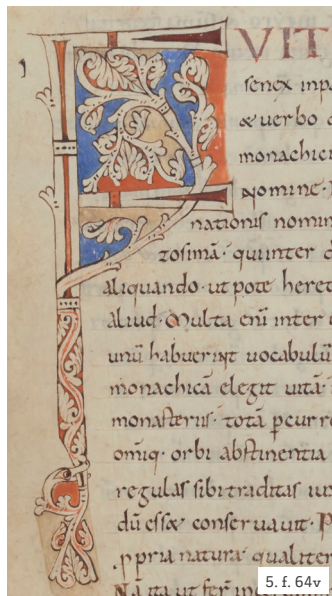 FVIT
senex inpa
& uerbo
monachic
nomine
nationis nomin
zosimā· quinter
aliquando· ut pote heret
aliud· Multa eni inter
unū habuerint uocabulū
monachicā elegit uitā·
monasteriis· totā p̄curr
omīq· orbi abstinentia
regulas sibi traditas
dū ess& conseruauit· P
p̄pria natura· qualiter
Na ita ut fer
5. f. 64v